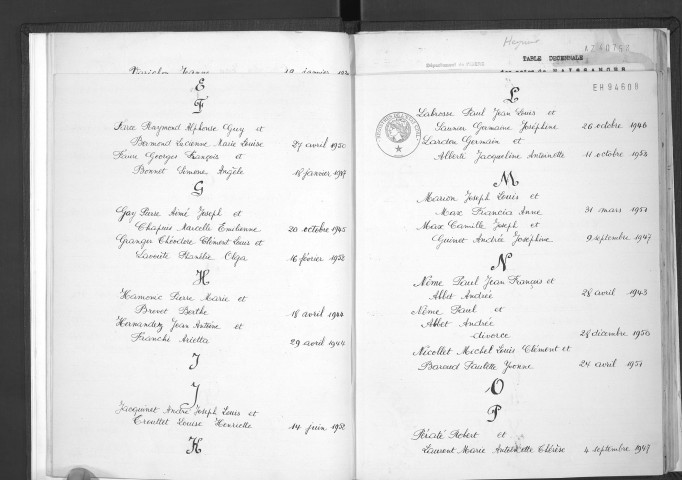 Jeanne 10 janvier
E
F
Faure Raymond Alphonse Guy et
Bermond Lucienne Marie Louise 27 avril 1950
Faure Georges François et
Bonnet Simone Angèle 18 janvier 1947
G
Gay Pierre Aimé Joseph et
Chapuis Marcelle Emilienne 20 octobre 1945
Granger Théodore Clément Louis et
Olga 16 février 1952
H
Hamonic Pierre Marie et
Brevet Berthe 18 avril 1944
Hernandez Jean Antoine et
Franchi Arietta 29 avril 1944
I
J
Jacquinet André Joseph Louis et
Trouillet Louise Henriette 14 juin 1952
K
TABLE DECENNALE
EH94600
L
Labrosse Paul Jean Louis et
Sannier Germaine Joséphine 26 octobre 1946
Lardon Germain et
Alberti Jacqueline Antoinette 11 octobre 1952
M
Marion Joseph Louis et
Max Francia Anne 31 mars 1951
Max Camille Joseph et
Guinet Andrée Joséphine 9 septembre 1947
N
Nême Paul Jean François et
Abbet Andrée 28 avril 1943
Nême Paul et
Abbet Andrée
divorce 28 décembre 1950
Nicollet Michel Louis Clément et
Baroud Paulette Yvonne 24 avril 1951
O
P
Robert et
Laurent Marie Antoinette Thérèse 4 septembre 1947